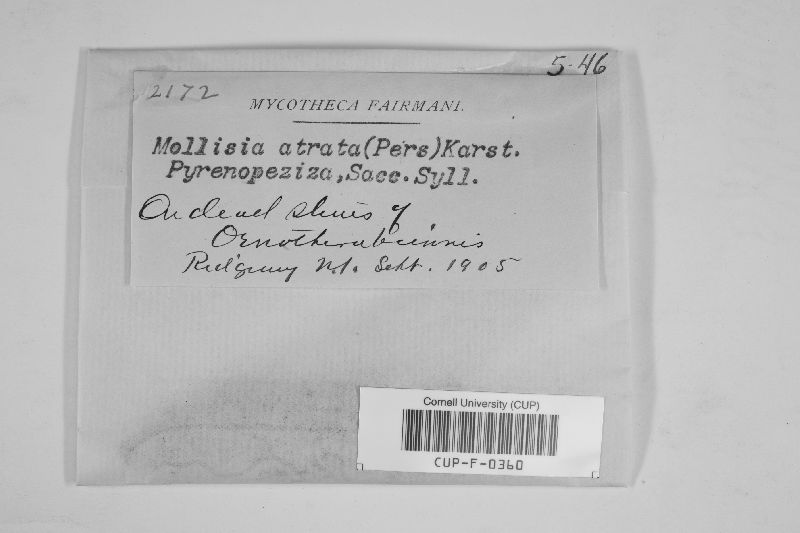 5-46
2172
MYCOTHECA FAIRMANI.
Mollisia atrata(Pers)Karst.
Pyrenopeziza,Sacc.Syll.
On dead stems of
Oenothera biennis
Ridgeway N.Y. Sept. 1905
Cornell University (CUP)
CUP-F-0360